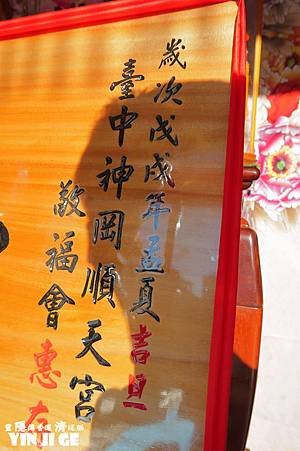 歲次戊戌年孟夏吉旦
臺中神岡順天宮
敬福會惠存
YINJI GE